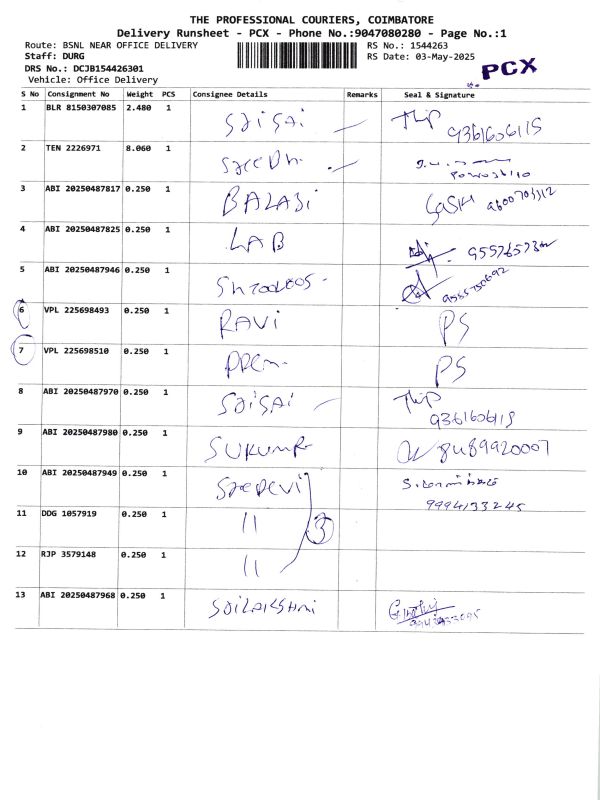 THE PROFESSIONAL COURIERS, COIMBATORE
Delivery Runsheet - PCX - Phone No.:9047080280 - Page No.:1
Route: BSNL NEAR OFFICE DELIVERY RS No.: 1544263
Staff: DURG RS Date: 03-May-2025
DRS No.: DCJB154426301 PCX
Vehicle: Office Delivery
S No Consignment No Weight PCS Consignee Details Remarks Seal & Signature
1 BLR 8150307085 2.480 1 SaiSAi Thip
9361606115
2 TEN 2226971 8.060 1
3 ABI 20250487817 0.250 1 BALAJi SaSH 9600703312
4 ABI 20250487825 0.250 1 LAB
5 ABI 20250487946 0.250 1
6 VPL 225698493 0.250 1 RAVi PS
7 VPL 225698510 0.250 1 PREM PS
8 ABI 20250487970 0.250 1 SaiSAi Thip
9361606115
9 ABI 20250487980 0.250 1 SUKUMAR 8489920007
10 ABI 20250487949 0.250 1 SREEDEVI
9994133245
11 DDG 1057919 0.250 1 11 3
12 RJP 3579148 0.250 1 11
13 ABI 20250487968 0.250 1 SAiLAKSHMI